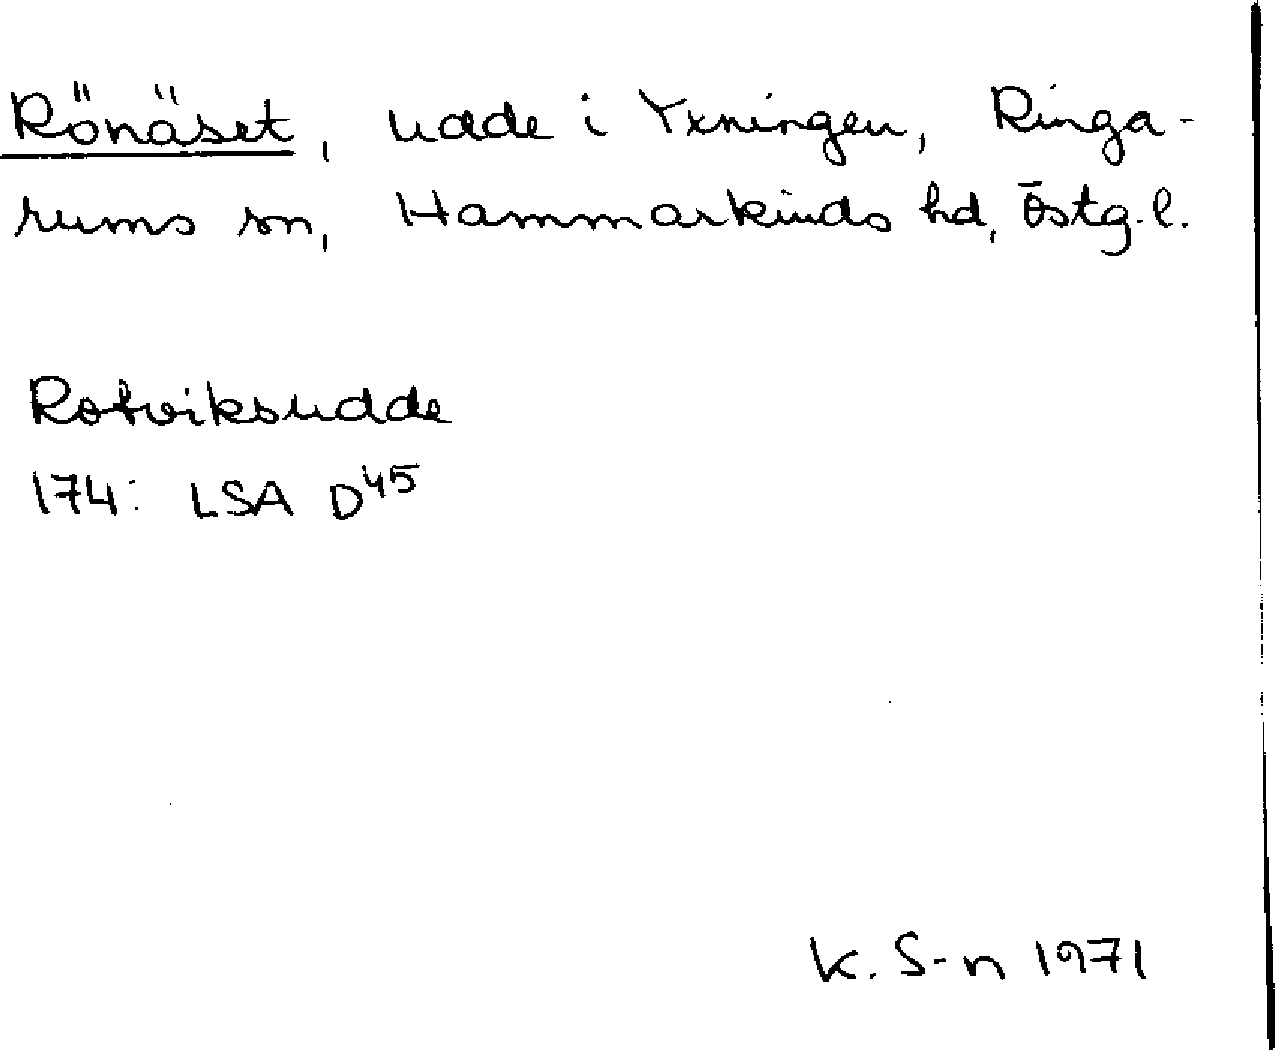 Rönäset, udde i Yxningen, Ringa-
rums sn, Hammarkinds hd, Östg.l.
Rotviksudde
174: LSA D45
K. S-n 1971